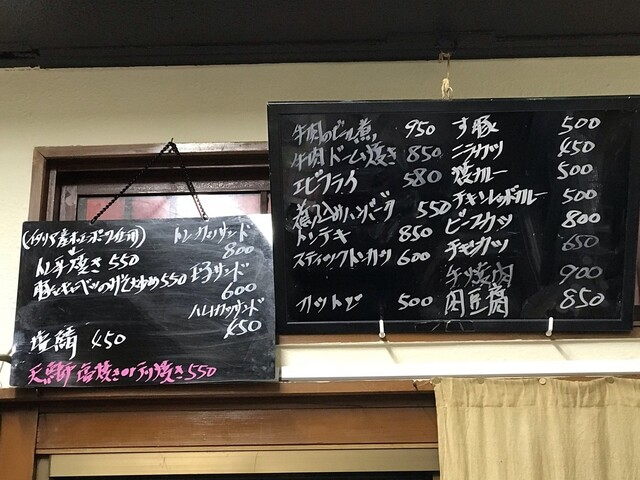 (イタリア産ホエーポーク使用)
トンカツサンド
800
生姜焼き 550
豚とキャベツのみそ炒め 550
玉子サンド
600
ハムカツサンド
450
塩鯖 450
天然ブリ塩焼きor照り焼き 550
牛肉のビール煮 950
牛肉ドーム焼き 850
エビフライ 580
煮込みハンバーグ 550
トンテキ 850
スティックトンカツ 600
カットビ 500
す豚 500
ニラカツ 450
焼カレー 500
チキンレッドカレー 500
ビーフカツ 800
チキンカツ 650
牛焼肉 900
肉豆腐 850